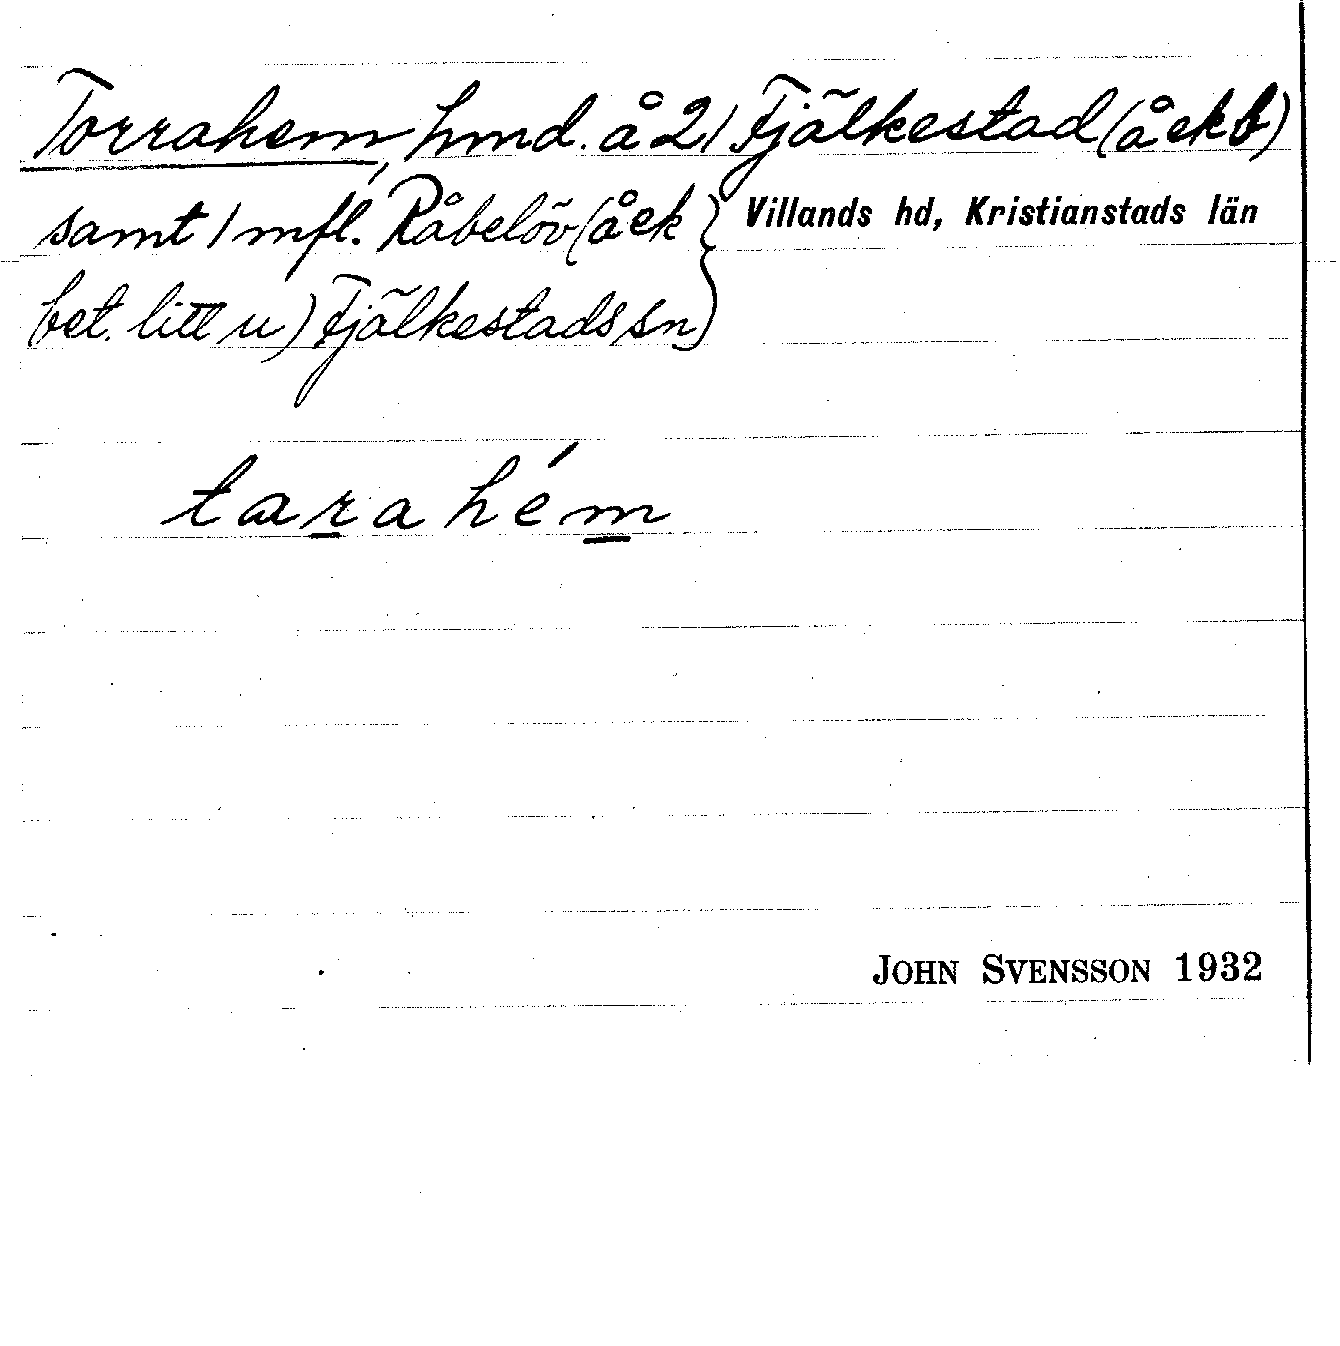 Torrahem, hmd. å 21 Fjälkestad (å ekb)
samt 1 mfl. Råbelöv (å ek
Villands hd, Kristianstads län
bet. litt u) Fjälkestads sn
tarahém
JOHN SVENSSON 1932